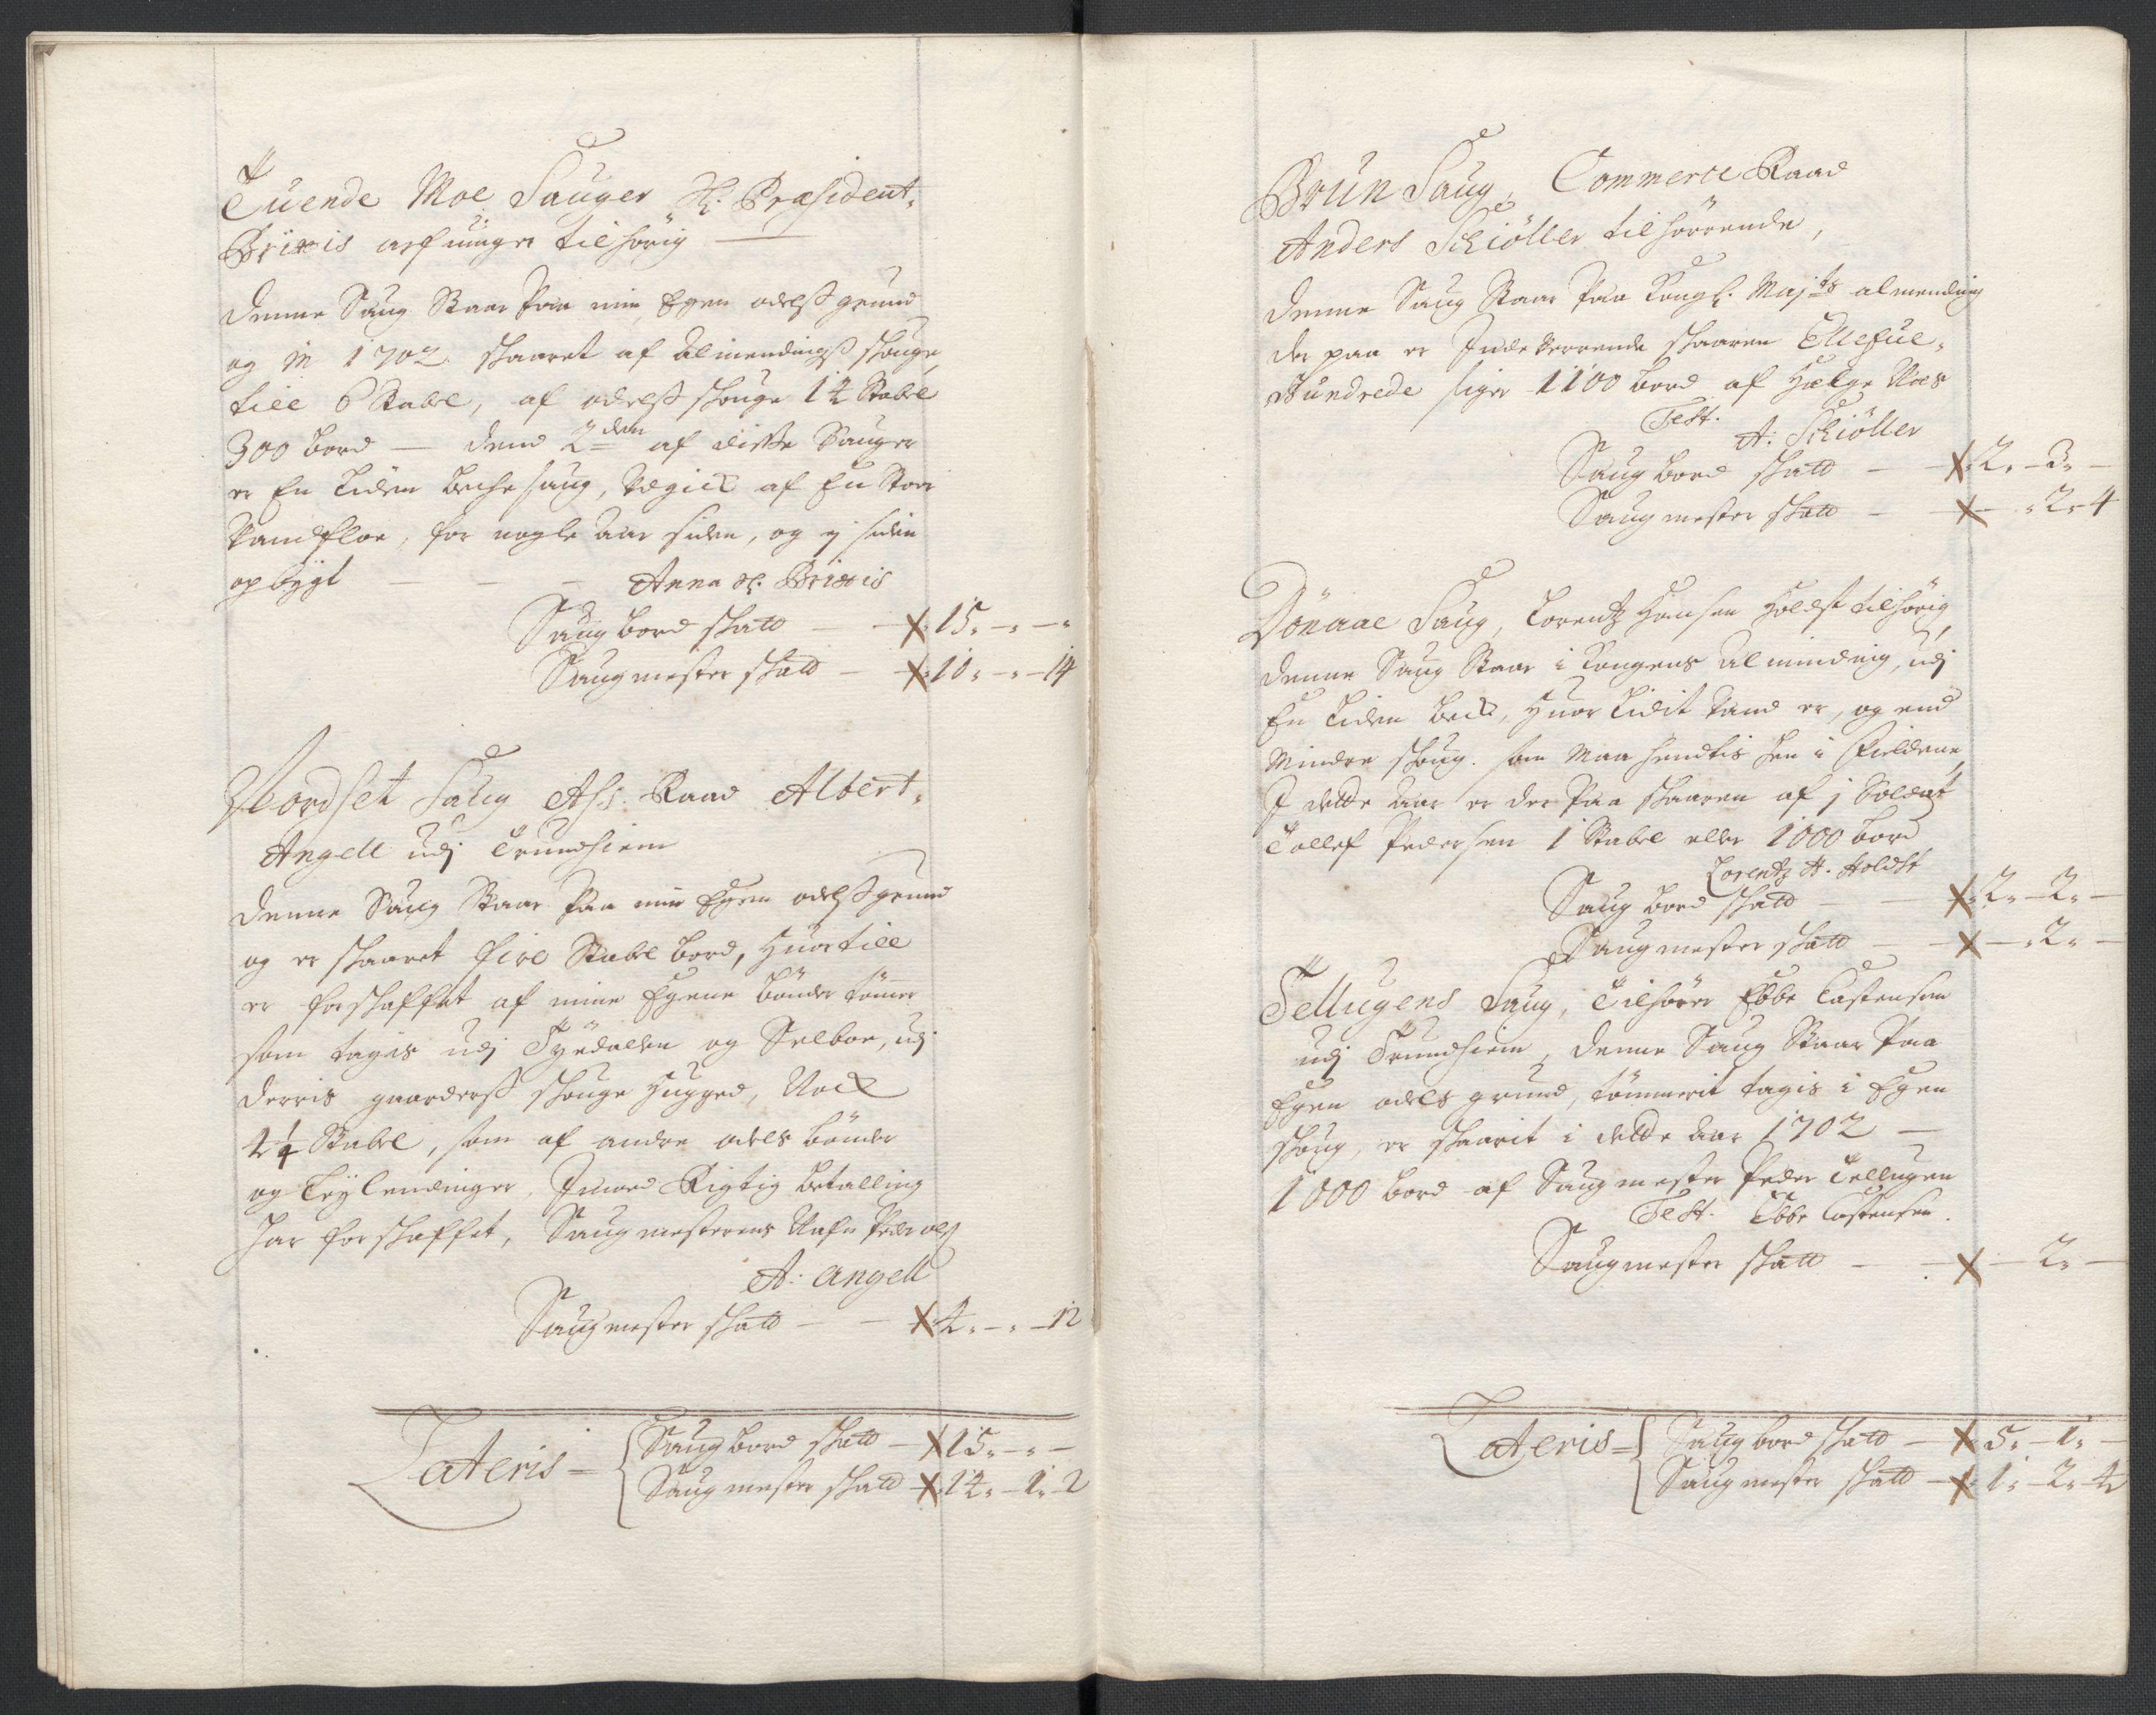 Tuende Moe Sauger Sl. Præsident
Brixis arfuinger tilhörig
Denne Saug Staar paa min Egen odelß grund
og in 1702 skaaret af Almendingß skouge
till 6 Stabel, af odelß skouge 14 Stabel
300 bord — dend 2den af disse Sauger
er En liden beche saug, Vegick af En Stor
Vandfloe, for nogle Aar siden, og ej siden
opbygt — — — Anna Sl. Brixis
Saugbord skatt — — 15 " — " — "
Saugmester skatt — 10 " — " — 14
Nordset Saug Ass. Raad Albert
Angell udj Trundhiem
Denne Saug Staar paa min Egen odelßgrund
og er skaaret fire Stabel bord, Huortill
er forskaffet af mine Egene bönder tömer
som tages udj Tydalen og Selboe, udj
derris gaarderß skouge Hugged, Nock
4 1/4 Stabel, som af andre odels bönder
og leylendinger, Imod Rigtig betalling
har forskaffet, Saugmesterens Nafn Peder
A: Angell
Saugmester skatt — — 4 " — " — 12
Lateris = Saugbord skatt — 15 " — " —
Saugmester skatt 14 " — 1 " 2
Brun Saug, Commerce Raad
Anders Schiöller tilhörende,
Denne Saug Staar paa Kongl. Majts almending
der paa er Indeverrende skaaren Ellefue
Hundrede siger 1100 bord af Helge Moes
Test.
A: Schiöller
Saug bord skatt — — 2 " — 3 " —
Saugmester skatt — — " 2 " 4
Dönaae Saug, Lorentz Hansen Holdst tilhörig
Denne Saug Staar i Kongens Alminding, udj
En liden beck, Huor lidit Vand er, og end
Mindre skoug. som Maa hendtis hen i Fieldene,
I dette Aar er der paa skaaren af j Soldat
Tollef Pedersen 1 Stabel eller 1000 bord
Lorentz H. Holdst
Saug bord skatt — — 2 " — 2 " —
Saugmester skatt — — — " 2 " —
Tellugens Saug, Tilhörer Ebbe Castensen
udj Trundhiem, Denne Saug Staar paa
Egen odels grund, tömmerit tagis i Egen
skoug, er skaarit i dette Aar 1702 —
1000 bord af Saugmester Peder Tellugen
Test. Ebbe Castensen.
Saugmester skatt — — — 2 " —
Lateris = Saug bord skatt — 5 " — 1 " —
Saugmester skatt — 1 " — 2 " 4